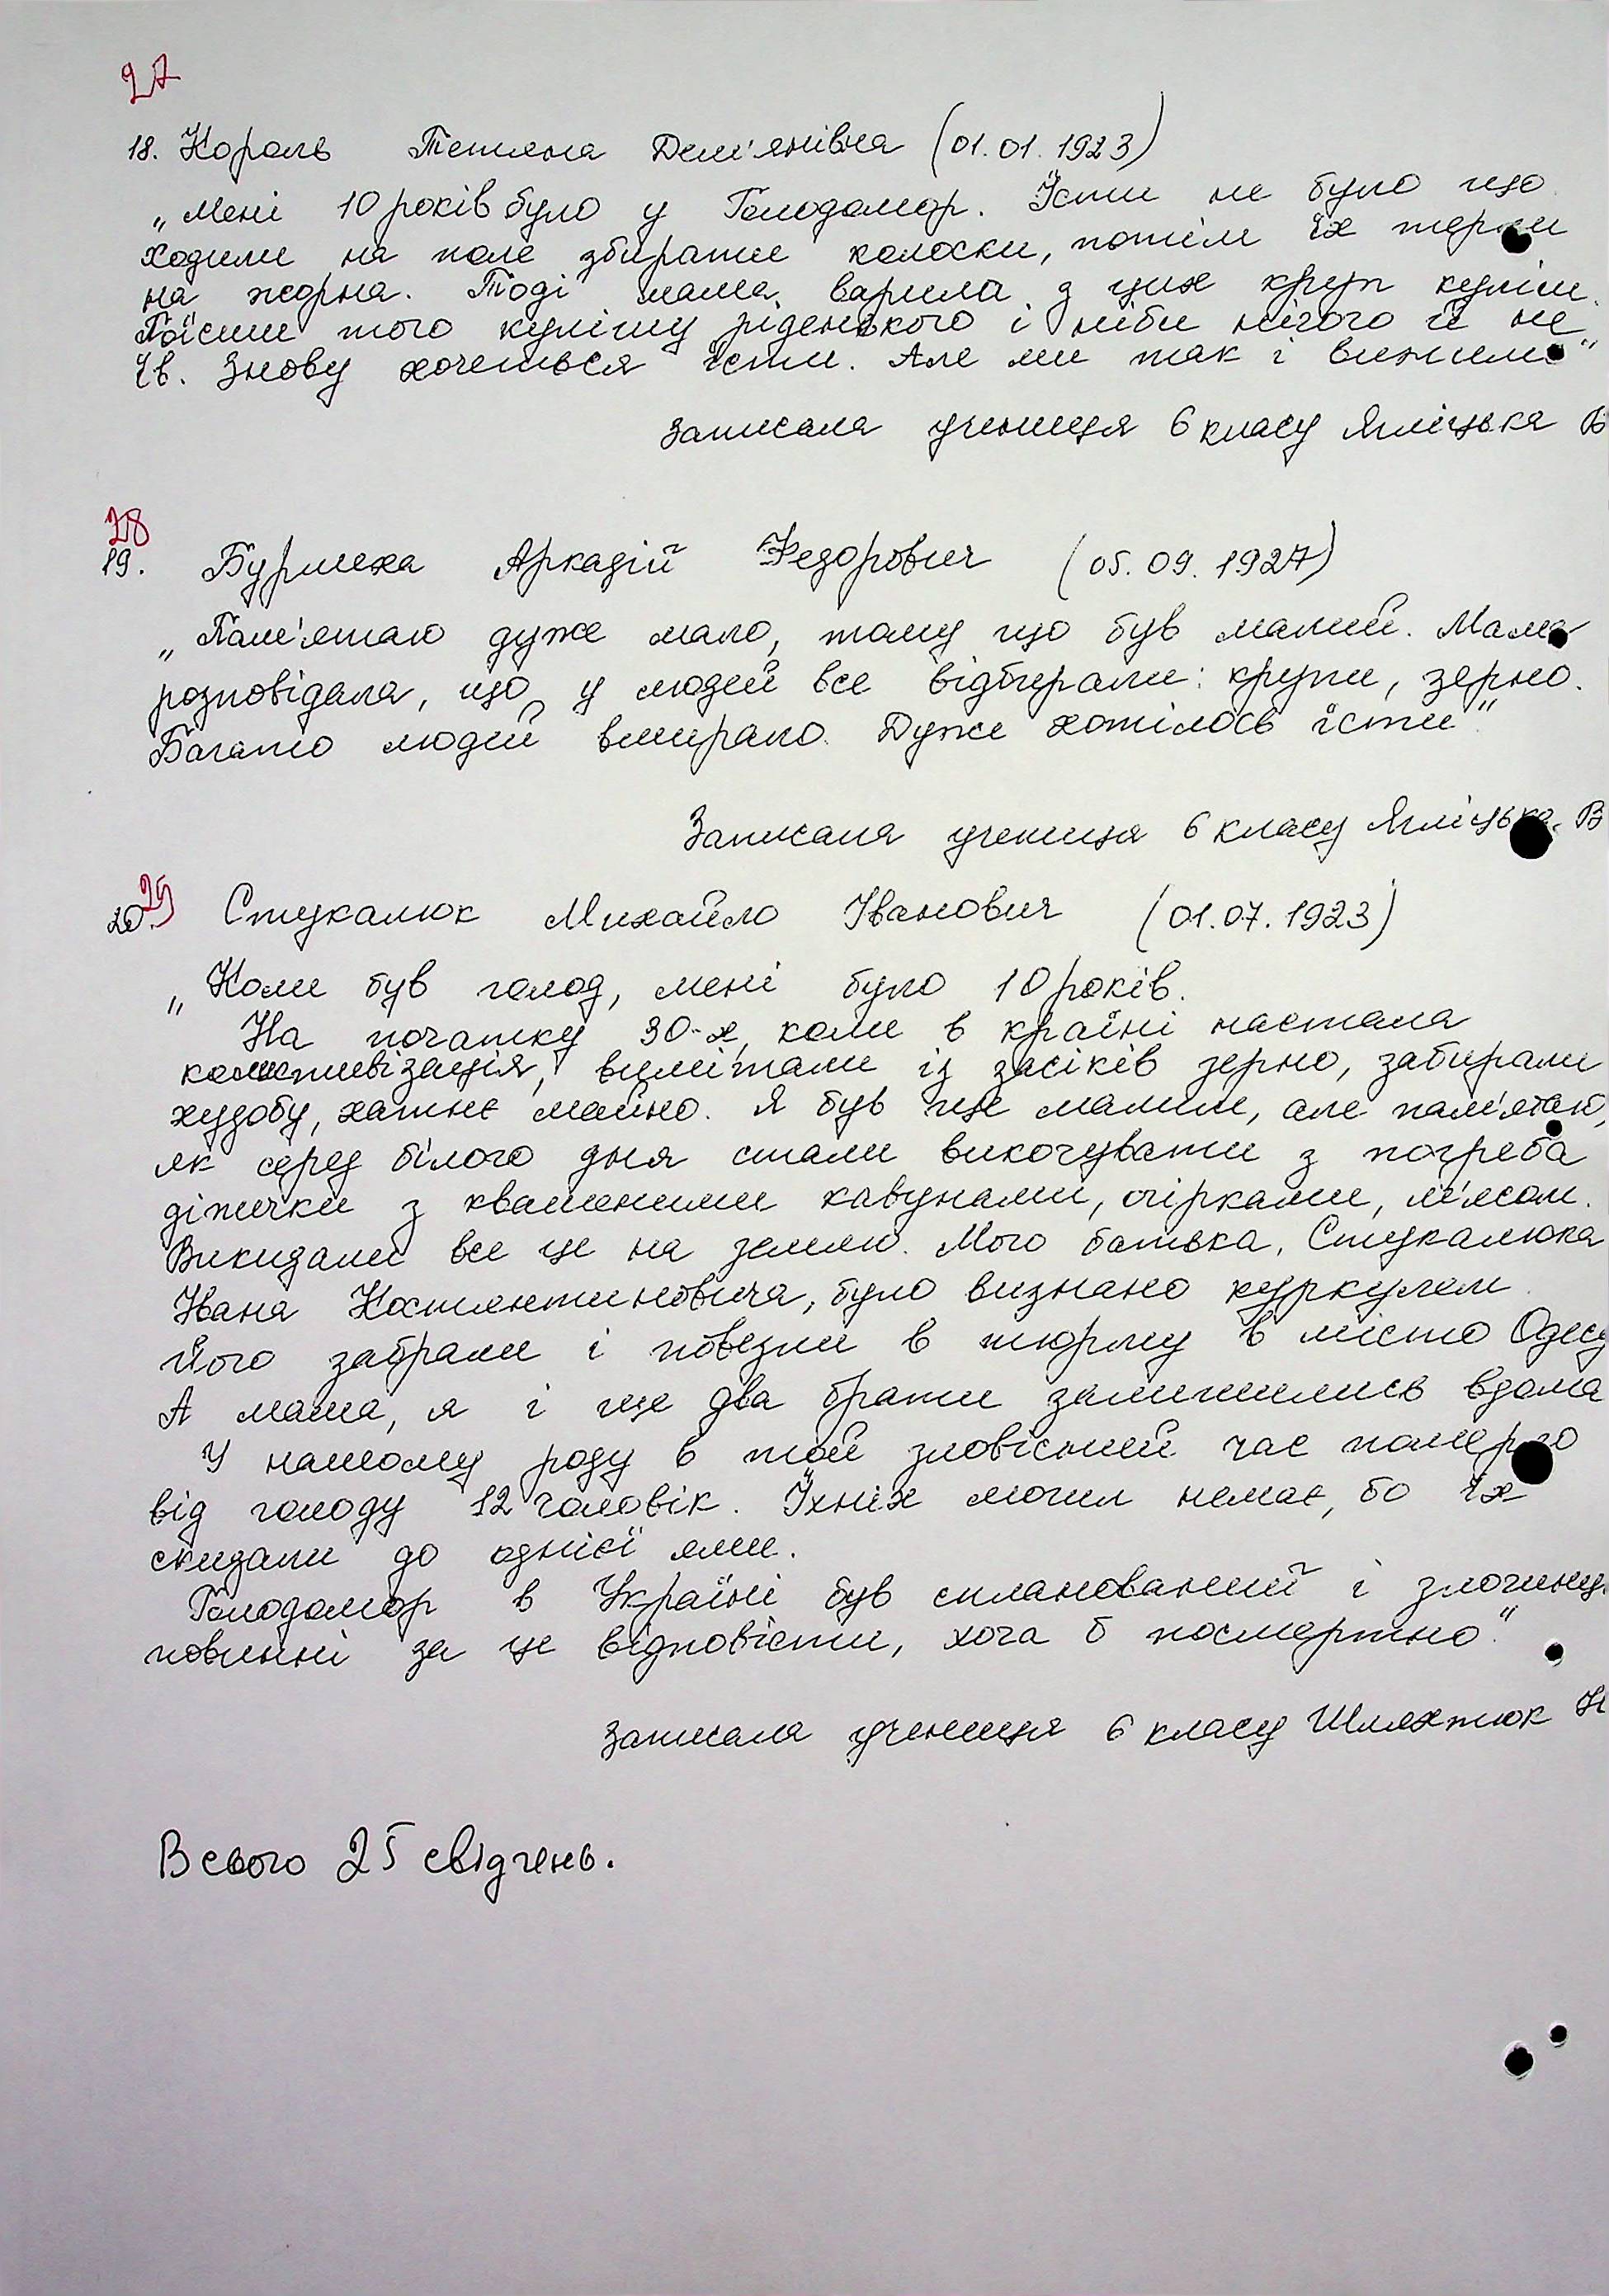 27
18. Король Тетяна Дем'янівна (01.01.1923)
„Мені 10 років було у Голодомор. Їсти не було що.
Ходили на поле збирати колоски, потім їх терли
на жорна. Тоді мама варила з цих круп куліш.
Поїсиш того кулішу ріденького і ніби нічого й не
їв. Знову хочеться їсти. Але ми так і вижили."
Записала учениця 6 класу Ягліцька В
28
19. Бурлеха Аркадій Федорович (05.09.1927)
„Пам'ятаю дуже мало, тому що був малий. Мама
розповідала, що у людей все відбирали: крупи, зерно.
Багато людей вмирало. Дуже хотілось їсти"
Записала учениця 6 класу Ягліцька В
29
20. Стукалюк Михайло Іванович (01.07.1923)
„Коли був голод, мені було 10 років.
На початку 30-х, коли в країні настала
колективізація, вимітали із засіків зерно, забирали
худобу, хатнє майно. Я був ще малим, але пам'ятаю,
як серед білого дня стали викочувати з погреба
діжечки з квашеними кавунами, огірками, м'ясом.
Викидали все це на землю. Мого батька, Стукалюка
Івана Костянтиновича, було визнано куркулем.
Його забрали і повезли в тюрму в місто Одесу
А мама, я і ще два брати залишились вдома
У нашому роду в той зловісний час померло
від голоду 12 чоловік. Їхніх могил немає, бо їх
скидали до однієї ями.
Голодомор в Україні був спланований і злочинці
повинні за це відповісти, хоча б посмертно."
Записала учениця 6 класу Шляхтюк Н
Всього 25 свідчень.